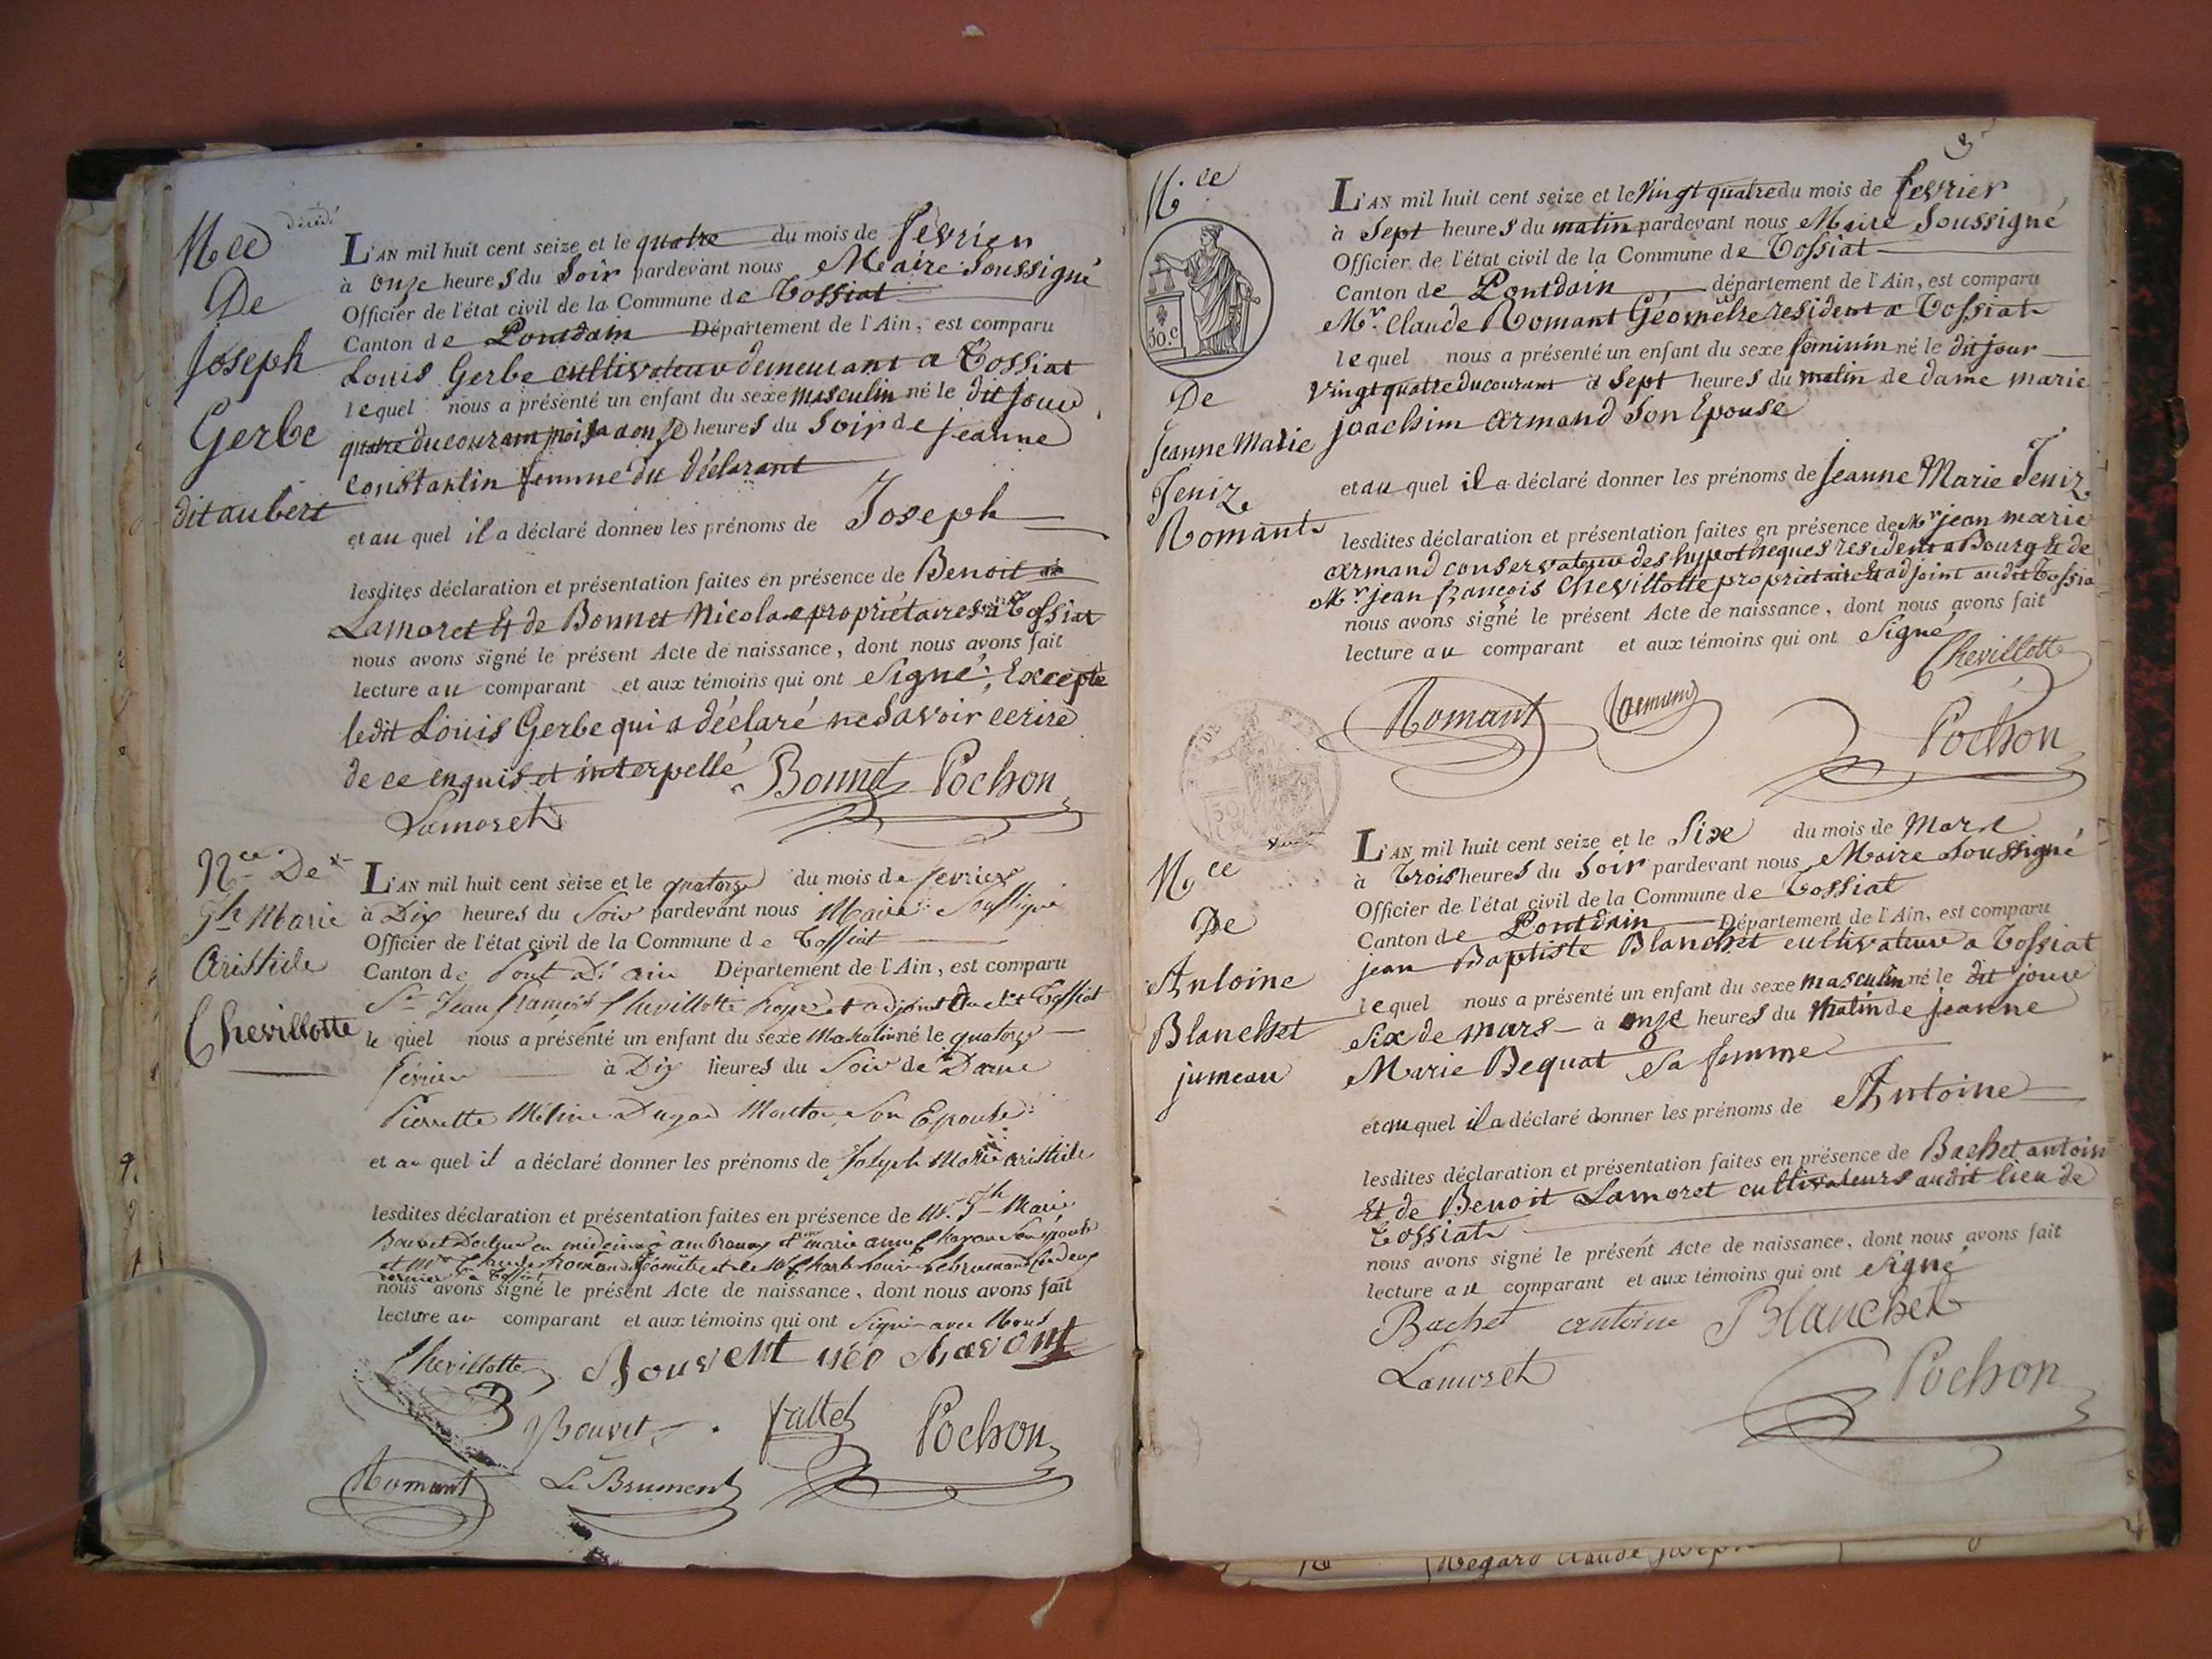 décédé
Nce
De
Joseph
Gerbe
dit aubert
L'AN mil huit cent seize et le quatre du mois de fevrier
à onze heures du Soir pardevant nous Maire Soussigné
Officier de l'état civil de la Commune de Tossiat
Canton de Pontdain Département de l'Ain, est comparu
Louis Gerbe cultivateur demeurant a Tossiat
lequel nous a présenté un enfant du sexe masculin né le dit jour
quatre du courant mois a onze heures du Soir de jeanne
constantin femme du déclarant
et au quel il a déclaré donner les prénoms de Joseph
lesdites déclaration et présentation faites en présence de Benoit
Lamoret Et de Bonnet Nicolas propriétaires a Tossiat
nous avons signé le présent Acte de naissance, dont nous avons fait
lecture au comparant et aux témoins qui ont Signé, Excepté
ledit Louis Gerbe qui a déclaré ne Savoir ecrire
de ce enquis et interpellé Bonnet Pochon
Lamoret
Nce De
Jh Marie
Aristide
Chevillotte
L'AN mil huit cent seize et le quatorze du mois de fevrier
à Dix heures du Soir pardevant nous Maire Soussigné
Officier de l'état civil de la Commune de Tossiat
Canton de Pont d'ain Département de l'Ain, est comparu
Sr Jean François Chevillotte Propre et adjoint Au dit Tossiat
le quel nous a présenté un enfant du sexe Masculin né le quatorze
fevrier à Dix heures du Soir de Dame
Pierrette Son Epouse
et au quel il a déclaré donner les prénoms de Joseph Marie aristide
lesdites déclaration et présentation faites en présence de Mr. Jh Marie
Bouvet Docteur en medecine à ambronay et marie anne Son épouse
et Mr Claude Romand Géomètre et de Mr Charle Louis Lebrument
dernier a Tossiat
nous avons signé le présent Acte de naissance, dont nous avons fait
lecture au comparant et aux témoins qui ont Signé avec Nous
Chevillotte
Bouvet Pochon
Romant Le Brument
3
Nce
50.C
De
Jeanne Marie
Jeniz
Romant
L'AN mil huit cent seize et le Vingt quatre du mois de fevrier
à Sept heures du matin pardevant nous Maire Soussigné
Officier de l'état civil de la Commune de Tossiat
Canton de Pontdain département de l'Ain, est comparu
Mr. Claude Romant Géomètre resident a Tossiat
lequel nous a présenté un enfant du sexe feminin né le dit jour
Vingt quatre du courant à Sept heures du matin de dame marie
joachim Armand Son Epouse
et au quel il a déclaré donner les prénoms de Jeanne Marie Jeniz
lesdites déclaration et présentation faites en présence de Mr jean marie
Armand conservateur des hypotheques resident a Bourg Et de
Mr jean françois Chevillotte propriétaire Et adjoint audit Tossia
nous avons signé le présent Acte de naissance, dont nous avons fait
lecture au comparant et aux témoins qui ont Signé
Chevillotte
Romant Pochon
Nce
De
Antoine
Blanchet
jumeau
L'AN mil huit cent seize et le Six du mois de Mars
à Trois heures du Soir pardevant nous Maire Soussigné
Officier de l'état civil de la Commune de Tossiat
Canton de Pontdain Département de l'Ain, est comparu
jean Baptiste Blanchet cultivateur a Tossiat
lequel nous a présenté un enfant du sexe masculin né le dit jour
Six de mars à onze heures du Matin de jeanne
Marie Bequat Sa femme
et au quel il a déclaré donner les prénoms de Antoine
lesdites déclaration et présentation faites en présence de Bachet antoin
Et de Benoit Lamoret cultivateurs audit lieu de
Tossiat
nous avons signé le présent Acte de naissance, dont nous avons fait
lecture au comparant et aux témoins qui ont Signé
Bachet antoine Blanchet
Lamoret Pochon